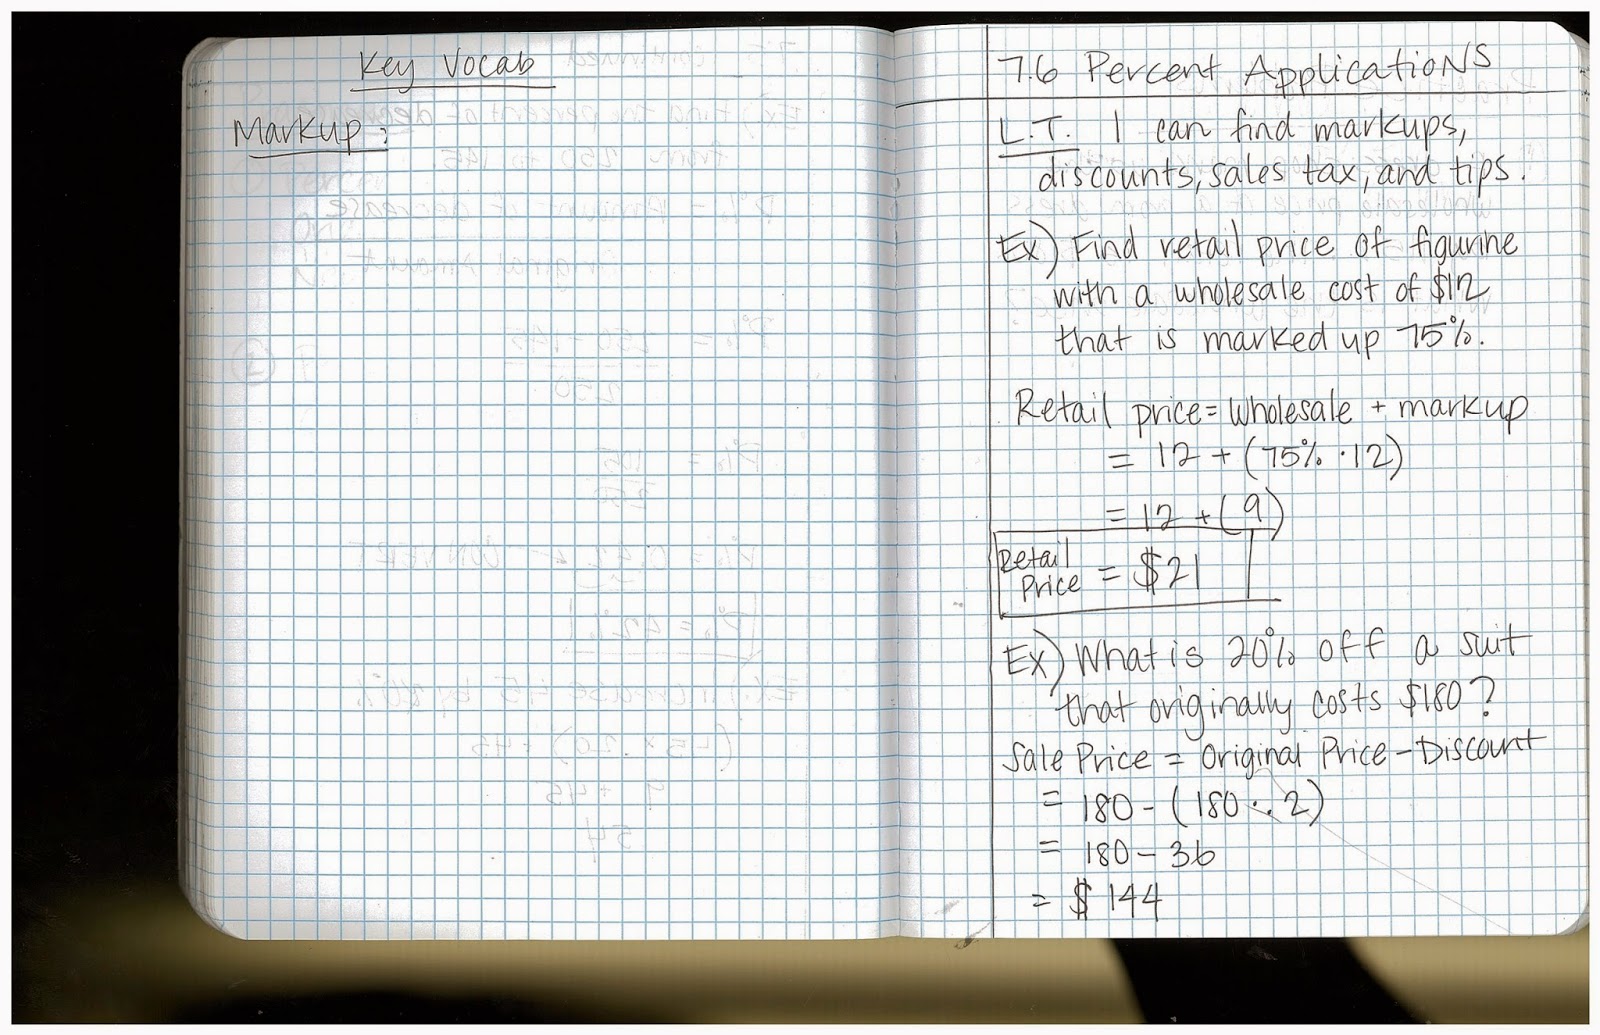 Key Vocab
Markup:
7.6 Percent Applications
L.T. I can find markups,
discounts, sales tax, and tips.
Ex) Find retail price of figurine
with a wholesale cost of $12
that is marked up 75%.
Retail price = wholesale + markup
= 12 + (75% · 12)
= 12 + (9)
Retail
Price = $21
Ex) What is 20% off a suit
that originally costs $180?
Sale Price = Original Price - Discount
= 180 - (180 · .2)
= 180 - 36
= $144